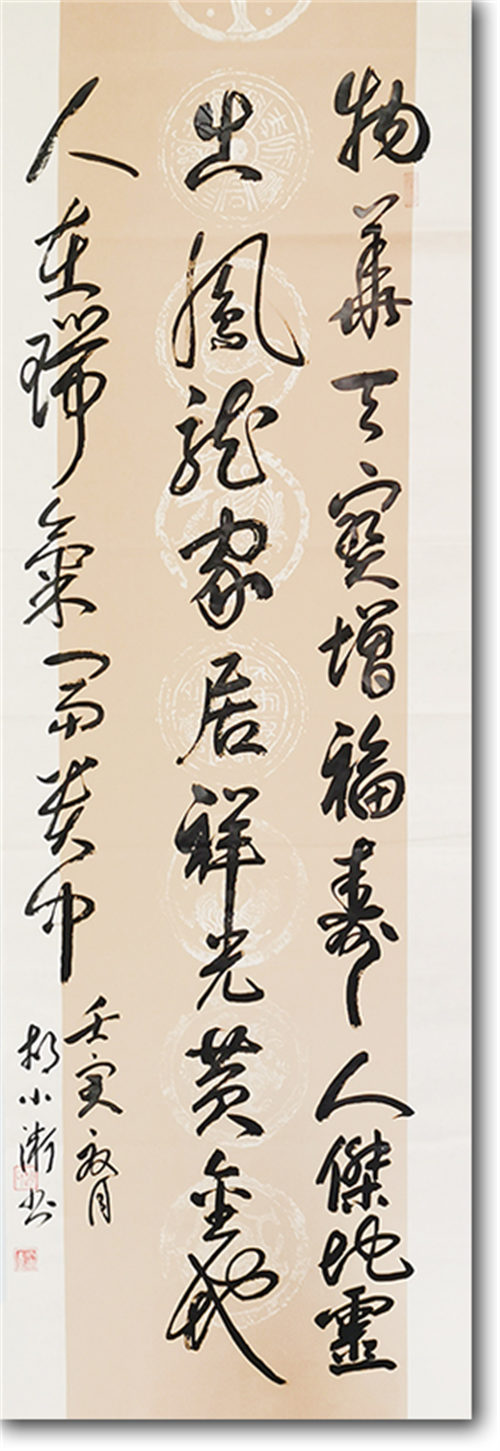 物華天寶增福壽人傑地靈
出鳳龍家居祥光黄金
人在瑞氣富貴中
壬寅月
小書